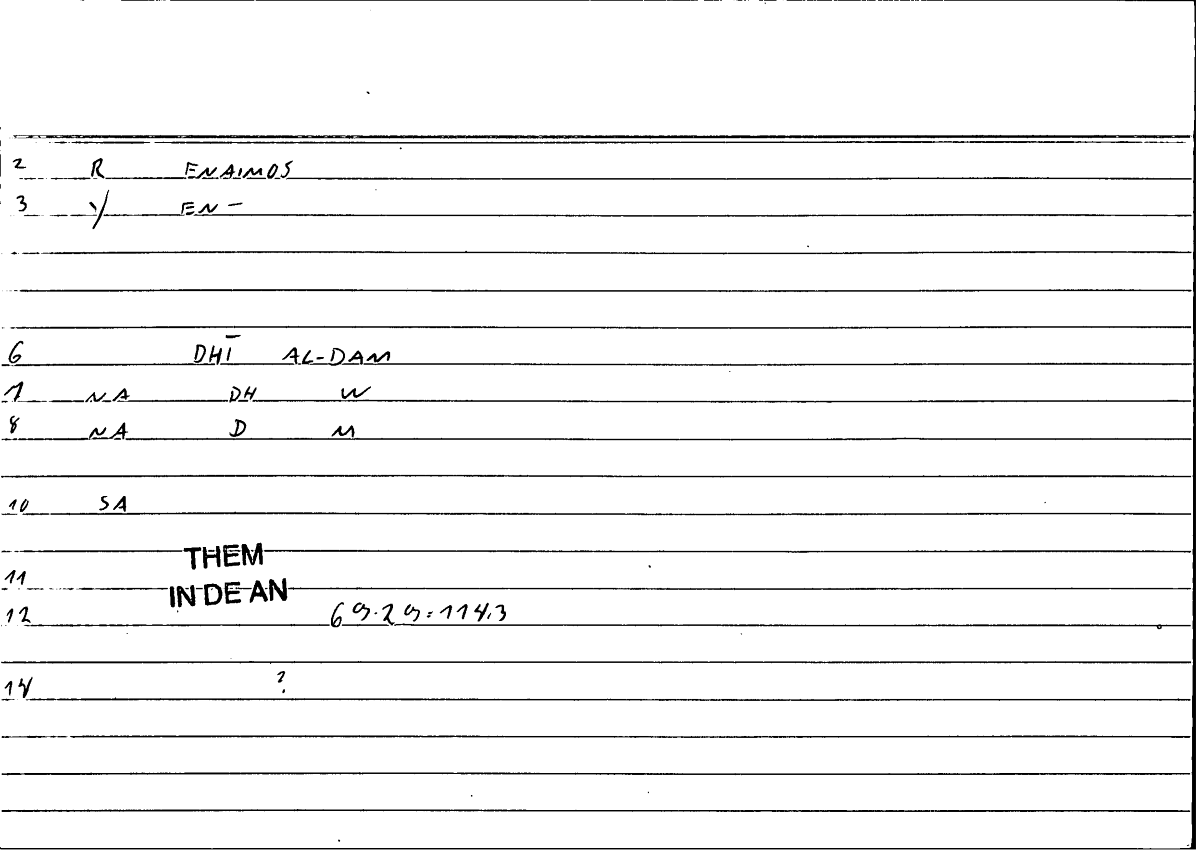 2 R ENAIMOS
3 Y EN-
6 DHĪ AL-DAM
7 NA DH W
8 NA D M
10 SA
THEM
11
IN DE AN
12
14 ?